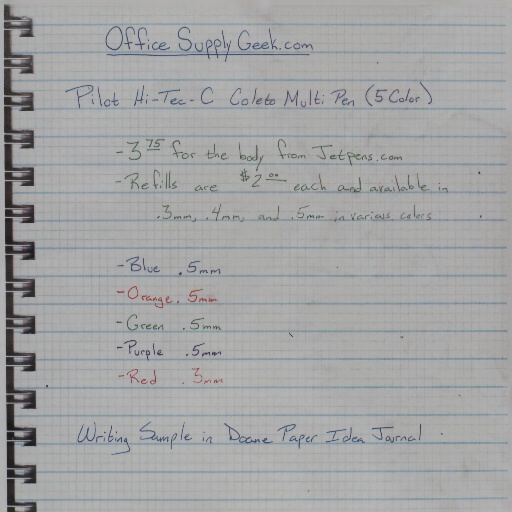 OfficeSupplyGeek.com
Pilot Hi-Tec-C Coleto Multi Pen (5 Color)
- 3 75 for the body from Jetpens.com
- Refills are $2 00 each and available in
.3mm, .4mm, and .5mm in various colors
- Blue .5mm
- Orange .5mm
- Green .5mm
- Purple .5mm
- Red .3mm
Writing Sample in Doane Paper Idea Journal